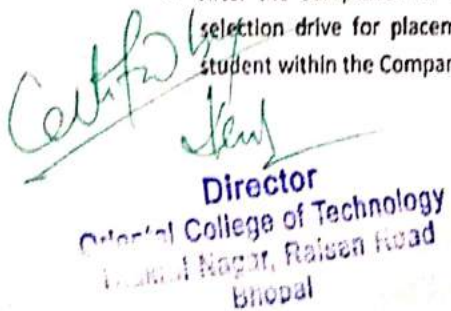 selection drive for placem
student within the Compar
Certified by
Director
Oriental College of Technology
Nagar, Raisen Road
Bhopal